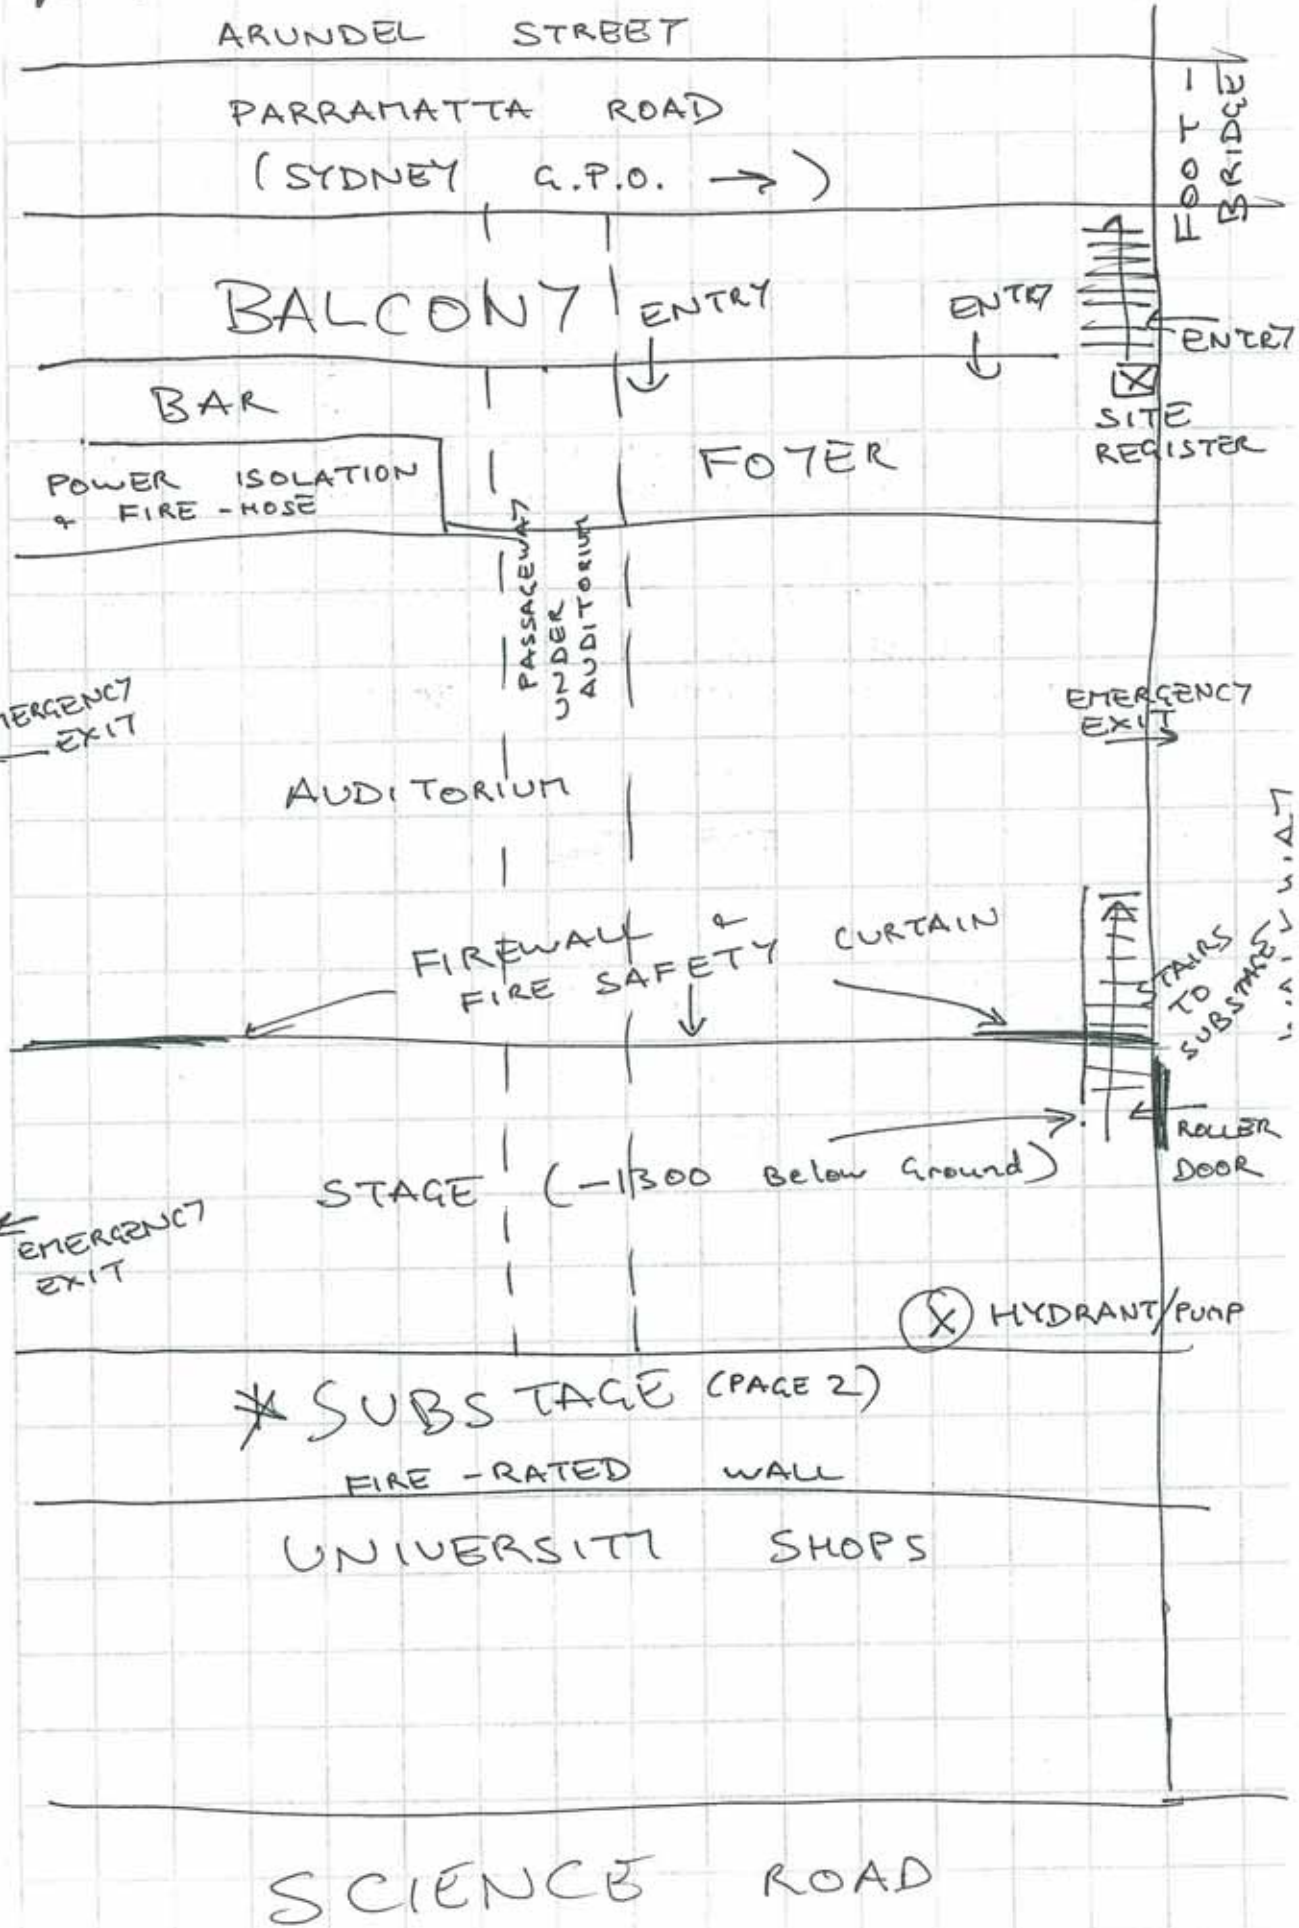 ARUNDEL STREET
PARRAMATTA ROAD
(SYDNEY G.P.O. →)
FOOT-
BRIDGE
BALCONY
ENTRY
ENTRY
ENTRY
BAR
SITE
REGISTER
POWER ISOLATION
& FIRE-HOSE
FOYER
PASSAGEWAY
UNDER
AUDITORIUM
EMERGENCY
EXIT
EMERGENCY
EXIT
AUDITORIUM
FIREWALL &
FIRE SAFETY CURTAIN
STAIRS
TO
SUBSTAGE
ROLLER
DOOR
STAGE (-1300 Below Ground)
EMERGENCY
EXIT
X HYDRANT/PUMP
* SUBSTAGE (PAGE 2)
FIRE-RATED WALL
UNIVERSITY SHOPS
SCIENCE ROAD